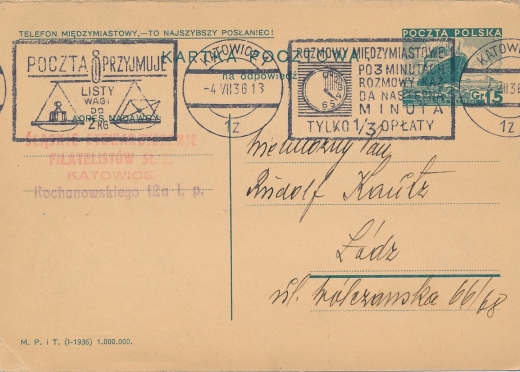 TELEFON MIĘDZYMIASTOWY,—TO NAJSZYBSZY POSŁANIEC!
KARTKA POCZTOWA
na odpowiedź
POCZTA POLSKA
GR. 15
POCZTA PRZYJMUJE
LISTY
WAGI
DO
2 KG
ADRES NADAWCY
KATOWICE 1
-4.VII 36 13
1z
ROZMOWY MIĘDZYMIASTOWE
PO 3 MINUTACH
ROZMOWY
DA NASTĘPNA
MINUTA
TYLKO 1/3 OPŁATY
KATOW
1z
FILATELISTÓW
KATOWICE
Kochanowskiego 12a I. p.
Wielmożny Pan
Rudolf Kautz
Łódź
ul. Wólczańska 66/68
M. P. i T. (I-1936) 1.000.000.